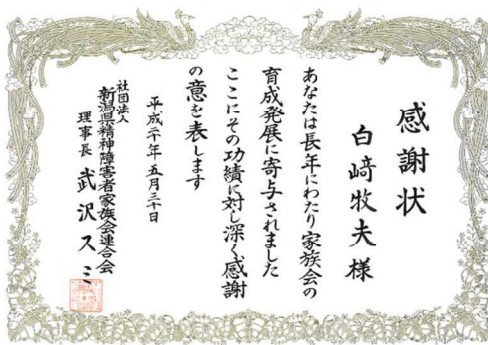 感謝状
白崎牧夫様
あなたは長年にわたり家族会の
育成発展に寄与されました
ここにその功績に対し深く感謝
の意を表します
平成二十年五月三十日
社団法人
新潟県精神障害者家族会連合会
理事長 武沢スミ